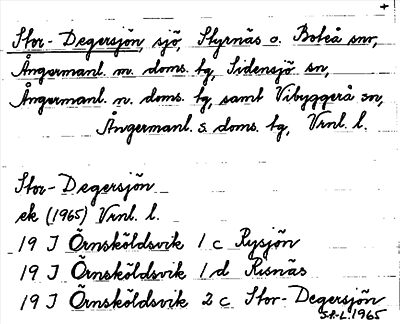 +
Stor-Degersjön, sjö, Styrnäs o. Boteå snr,
Ångermanl. m. doms. tg, Sidensjö sn,
Ångermanl. n. doms. tg, samt Vibyggerå sn,
Ångermanl. s. doms. tg, Vrnl. l.
Stor-Degersjön
ek (1965) Vrnl. l.
19 J Örnsköldsvik 1 c Rysjön
19 J Örnsköldsvik 1 d Risnäs
19 J Örnsköldsvik 2 c Stor-Degersjön
S.P-L. 1965